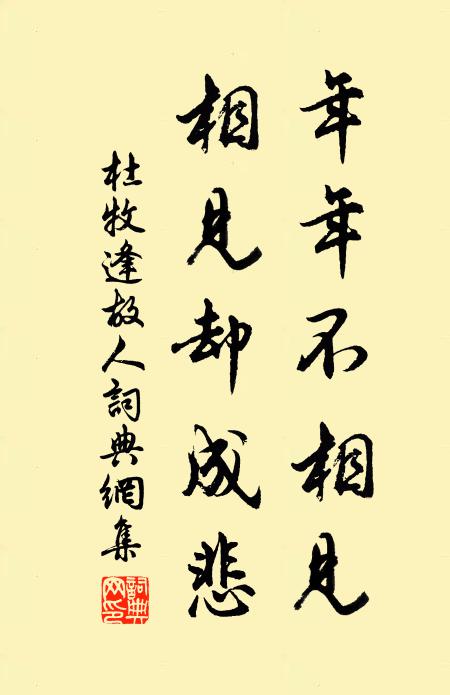 年年不相見
相見却成悲
杜牧逢故人詞典網集
詞典
网印